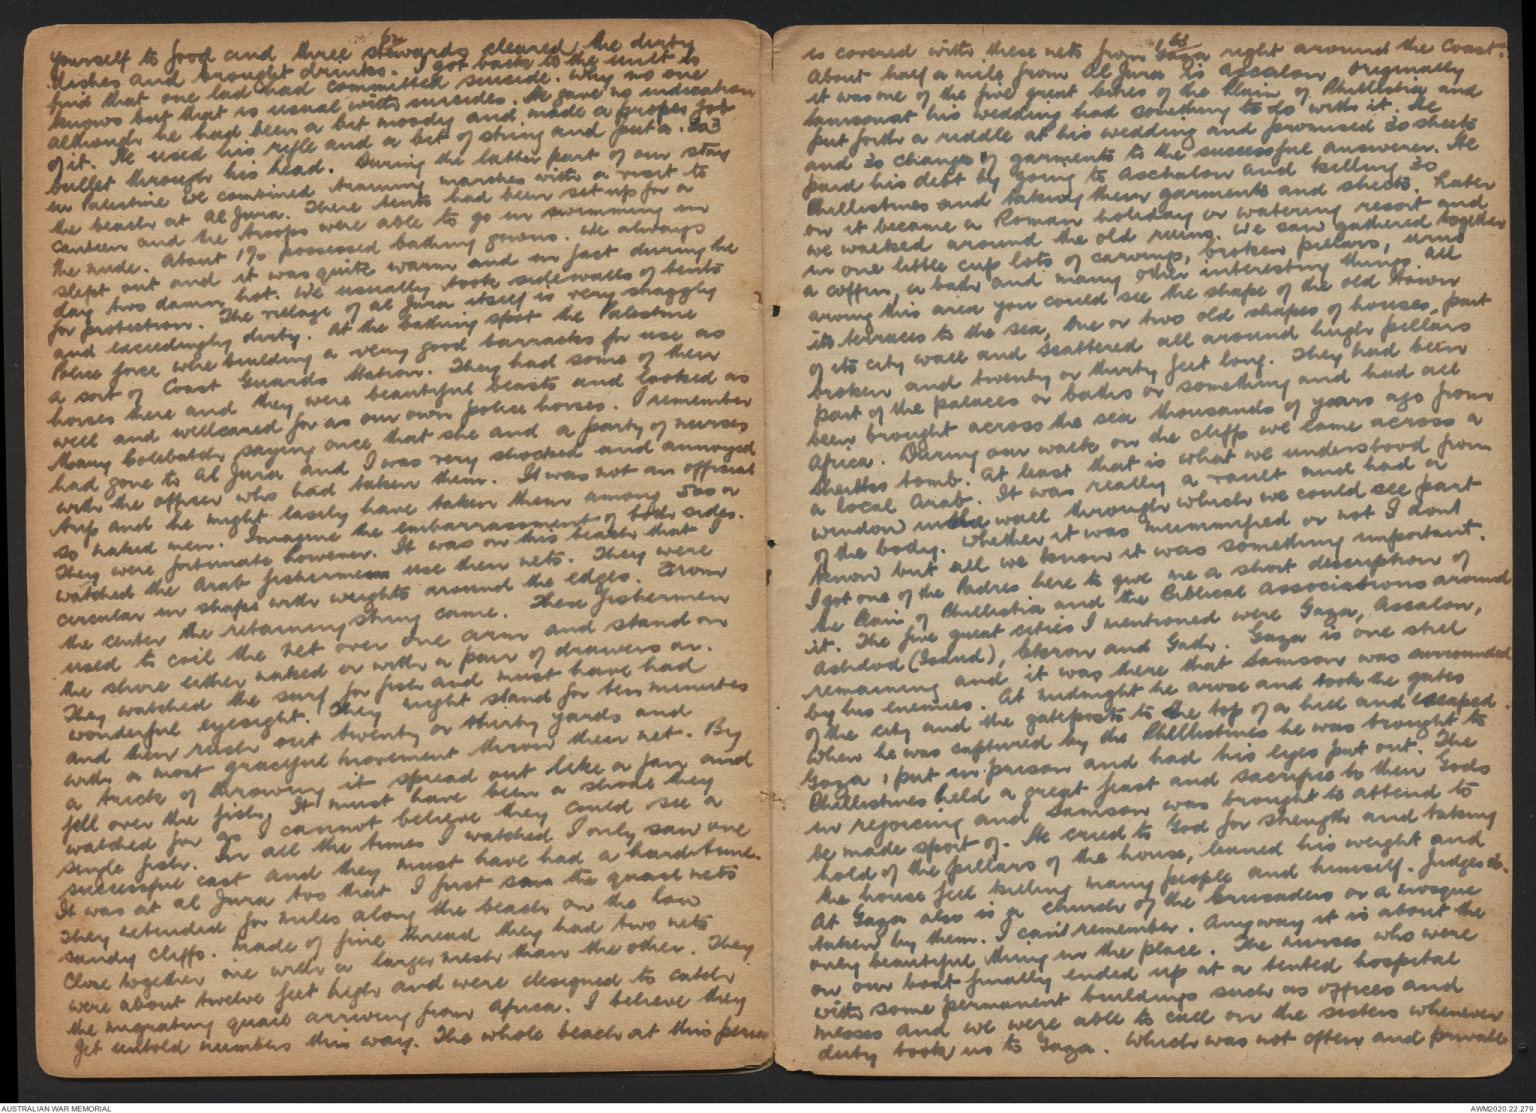 62
yourself to food and three stewards cleared the dirty
dishes and brought drinks. I got back to the unit to
find that one lad had committed suicide. Why no one
knows but that is usual with suicides. He gave no indication
although he had been a bit moody and made a proper job
of it. He used his rifle and a bit of string and put a .303
bullet through his head. During the latter part of our stay
in Palestine we combined training marches with a visit to
the beach at Al Jura. There tents had been set up for a
canteen and the troops were able to go in swimming in
the nude. About 1% possessed bathing gowns. We always
slept out and it was quite warm and in fact during the
day two damn hot. We usually took side walls of tents
for protection. The village of Al Jura itself is very straggly
and exceedingly dirty. At the bathing spot the Palestine
Police force were building a very good barracks for use as
a sort of Coast Guards Station. They had some of their
horses there and they were beautiful beasts and looked as
well and wellcared for as our own police horses. I remember
Mary Colebatch saying once that she and a party of nurses
had gone to Al Jura and I was very shocked and annoyed
with the officer who had taken them. It was not an official
trip and he might easily have taken them among 500 or
so naked men. Imagine the embarrassment of both sides.
They were fortunate however. It was on this beach that I
watched the Arab fishermen use their nets. They were
circular in shape with weights around the edges. From
the center the retaining string came. These fishermen
used to coil the net over one arm and stand on
the shore either naked or with a pair of drawers on.
They watched the surf for fish and must have had
wonderful eyesight. They might stand for ten minutes
and then rush out twenty or thirty yards and
with a most graceful movement throw their net. By
a trick of throwing it spread out like a fan and
fell over the fish. It must have been a shoal they
watched for as I cannot believe they could see a
single fish. In all the times I watched I only saw one
successful cast and they must have had a hard time.
It was at Al Jura too that I first saw the quail nets
They extended for miles along the beach on the low
sandy cliffs. Made of fine thread they had two nets
close together one with a larger mesh than the other. They
were about twelve feet high and were designed to catch
the migrating quail arriving from Africa. I believe they
get untold numbers this way. The whole beach at this period
63
is covered with these nets from Gaza right around the coast.
About half a mile from Al Jura is Ascalon originally
it was one of the five great cities of the Plain of Phillistia and
Samson at his wedding had something to do with it. He
put forth a riddle at his wedding and promised 30 sheets
and 30 changes of garments to the successful answerer. He
paid his debt by going to Aschalon and killing 30
Phillistines and taking their garments and sheets. Later
on it became a Roman holiday or watering resort and
we walked around the old ruins. We saw gathered together
in one little cup lots of carvings, broken pillars, urns
a coffin, a bath and many other interesting things all
arong this area you could see the shape of the old town
its terraces to the sea, one or two old shapes of houses, part
of its city wall and scattered all around hugh pillars
broken and twenty or thirty feet long. They had been
part of the palaces or baths or something and had all
been brought across the sea thousands of years ago from
Africa. During our walk on the cliffs we came across a
sheiks tomb. At least that is what we understood from
a local Arab. It was really a vault and had a
window in the wall through which we could see part
of the body. Whether it was mummified or not I dont
know but all we know it was something important.
I got one of the Padres here to give me a short description of
the Plain of Phillistia and the Biblical associations around
it. The five great cities I mentioned were Gaza, Ascalon,
Ashdod (Isdud), Ekron and Gath. Gaza is one still
remaining and it was there that Samson was surrounded
by his enemies. At midnight he arose and took the gates
of the city and the gateposts to the top of a hill and escaped.
When he was captured by the Phillistines he was brought to
Gaza, put in prison and had his eyes put out. The
Phillistines held a great feast and sacrifice to their Gods
in rejoicing and Samson was brought to attend to
be made sport of. He cried to God for strength and taking
hold of the pillars of the house, leaned his weight and
the house fell killing many people and himself. Judges 16.
At Gaza also is a church of the Crusaders or a mosque
taken by them. I can't remember. Anyway it is about the
only beautiful thing in the place. The nurses who were
on our boat finally ended up at a tented hospital
with some permanent buildings such as offices and
messes and we were able to call on the sisters whenever
duty took us to Gaza. Which was not often and private
AUSTRALIAN WAR MEMORIAL
AWM2020.22.279